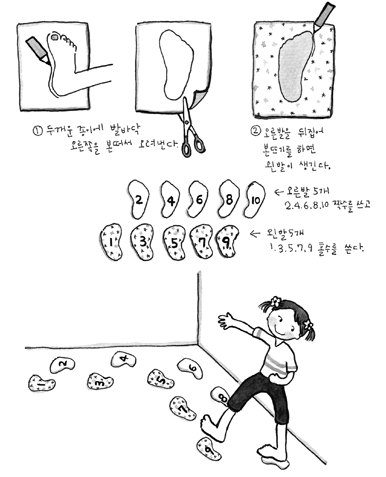 ① 두꺼운 종이에 발바닥
오른쪽을 본떠서 오려낸다.
② 오른발을 뒤집어
본뜨기를 하면
왼발이 생긴다.
2 4 6 8 10
← 오른발 5개
2.4.6.8.10 짝수를 쓰고
1 3 5 7 9
← 왼발 5개
1.3.5.7.9 홀수를 쓴다.
2 4 6
1 3 5
7 8
9